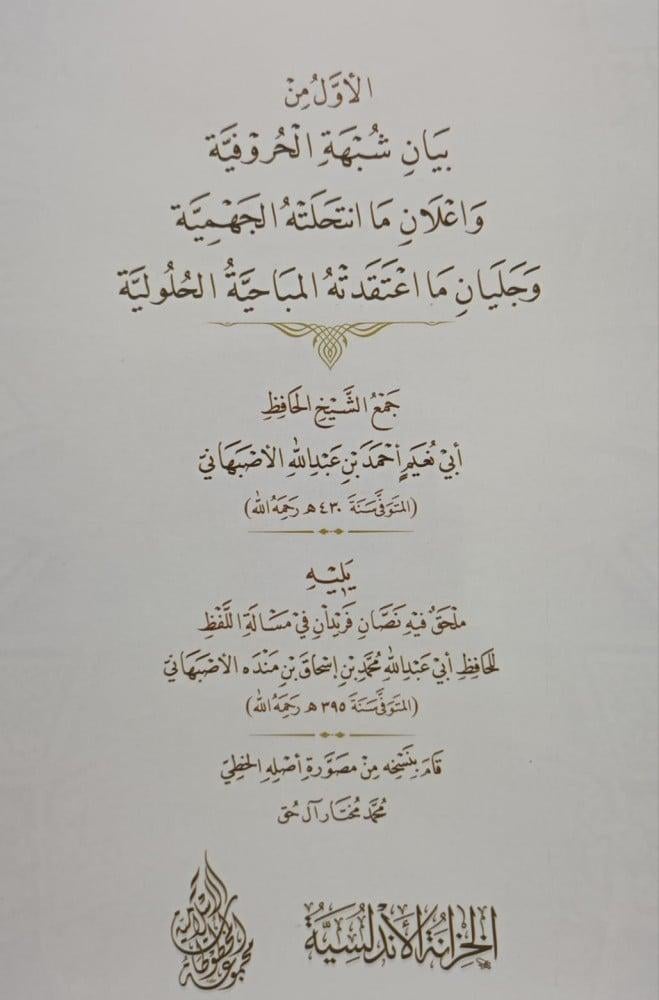 الأَوَّلُ مِنْ
بَيَانِ شُبْهَةِ الْحُرُوْفِيَّة
وَاعْلَانِ مَا انتَحَلَتْهُ الجَهْمِيَّة
وَجَلَيَانِ مَا اعْتَقَدَتْهُ المبَاحِيَّةُ الحُلُولِيَّة
جَمْعُ الشَّيْخِ الحَافِظِ
أَبِيْ نُعَيمٍ أَحْمَدَ بْنِ عَبْدِ اللهِ الأَصْبَهَانِيّ
(المتَوَفَّى سَنَةَ ٤٣٠ هـ رَحِمَهُ الله)
يَلِيْهِ
مُلْحَقٌ فِيْهِ نَصَّانِ فَرِيْدَانِ فِيْ مَسْأَلَةِ اللَّفْظِ
لِلْحَافِظِ أَبِيْ عَبْدِ اللهِ مُحَمَّدِ بْنِ إِسْحَاقَ بْنِ مَنْدَه الأَصْبَهَانِيّ
(المتَوَفَّى سَنَةَ ٣٩٥ هـ رَحِمَهُ الله)
قَامَ بِنَسْخِهِ مِنْ مُصَوَّرَةِ أَصْلِهِ الخَطِّيِّ
مُحَمَّد مُخْتَار آل حُق
الخِزَانَةُ الأَنْدَلُسِيَّةُ
مجموعة المخطوطات الإسلامية